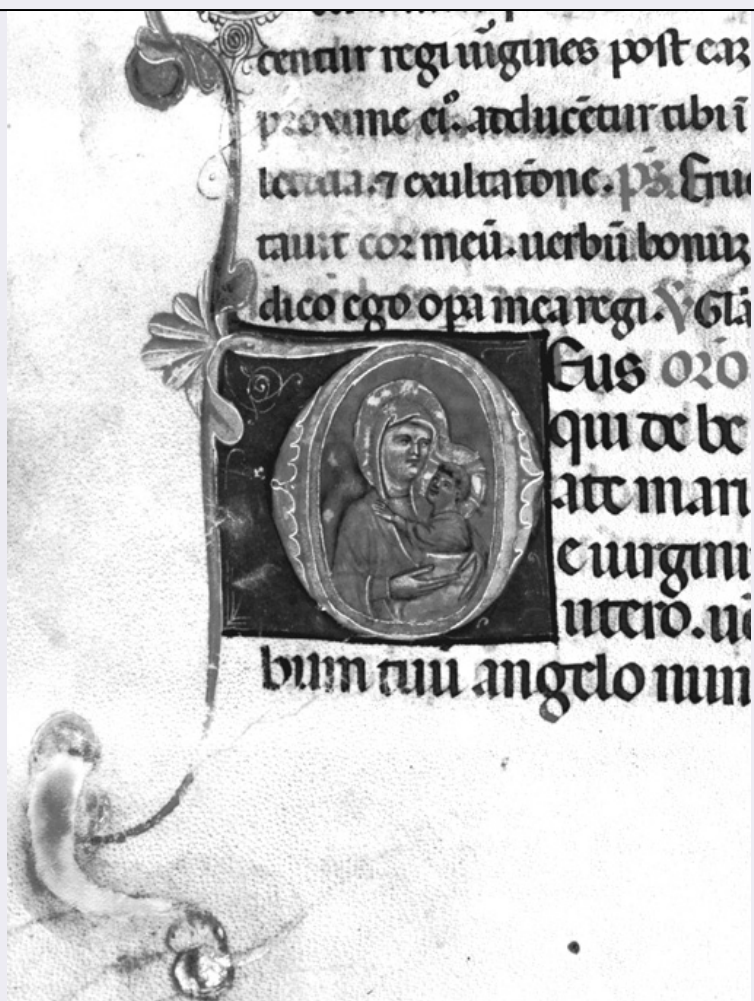 centur regi uīgines post eaʒ
proxime eiꝰ. adducētur tibi ī
leticia. ⁊ exultatōne. p̄s. Eruc
tauit cor meū. uerbū bonuʒ
dico ego oꝑa mea regi. V Glā
Eus oro
qui de be
ate mari
e uirgini
utero. uē
bum tuū angelo nun